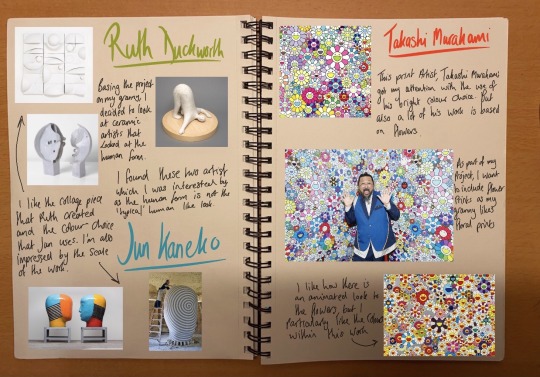 Ruth Duckworth
Basing the project
on my granny, I
decided to look
at ceramic
artists that
looked at the
human form.
I found these two artist
which I was interested by
as the human form is not the
'typical' human like look.
I like the collage piece
that Ruth created
and the colour choice
that Jun uses. I'm also
impressed by the scale
of the work.
Jun Kaneko
Takashi Murakami
This print Artist, Takashi Murakami
got my attention with the use of
his bright colour choice but
also a lot of his work is based
on flowers.
As part of my
Project, I want
to include flower
prints as my
granny likes
floral prints
I like how there is
an animated look to
the flowers, but I
particularly like the colours
within this work